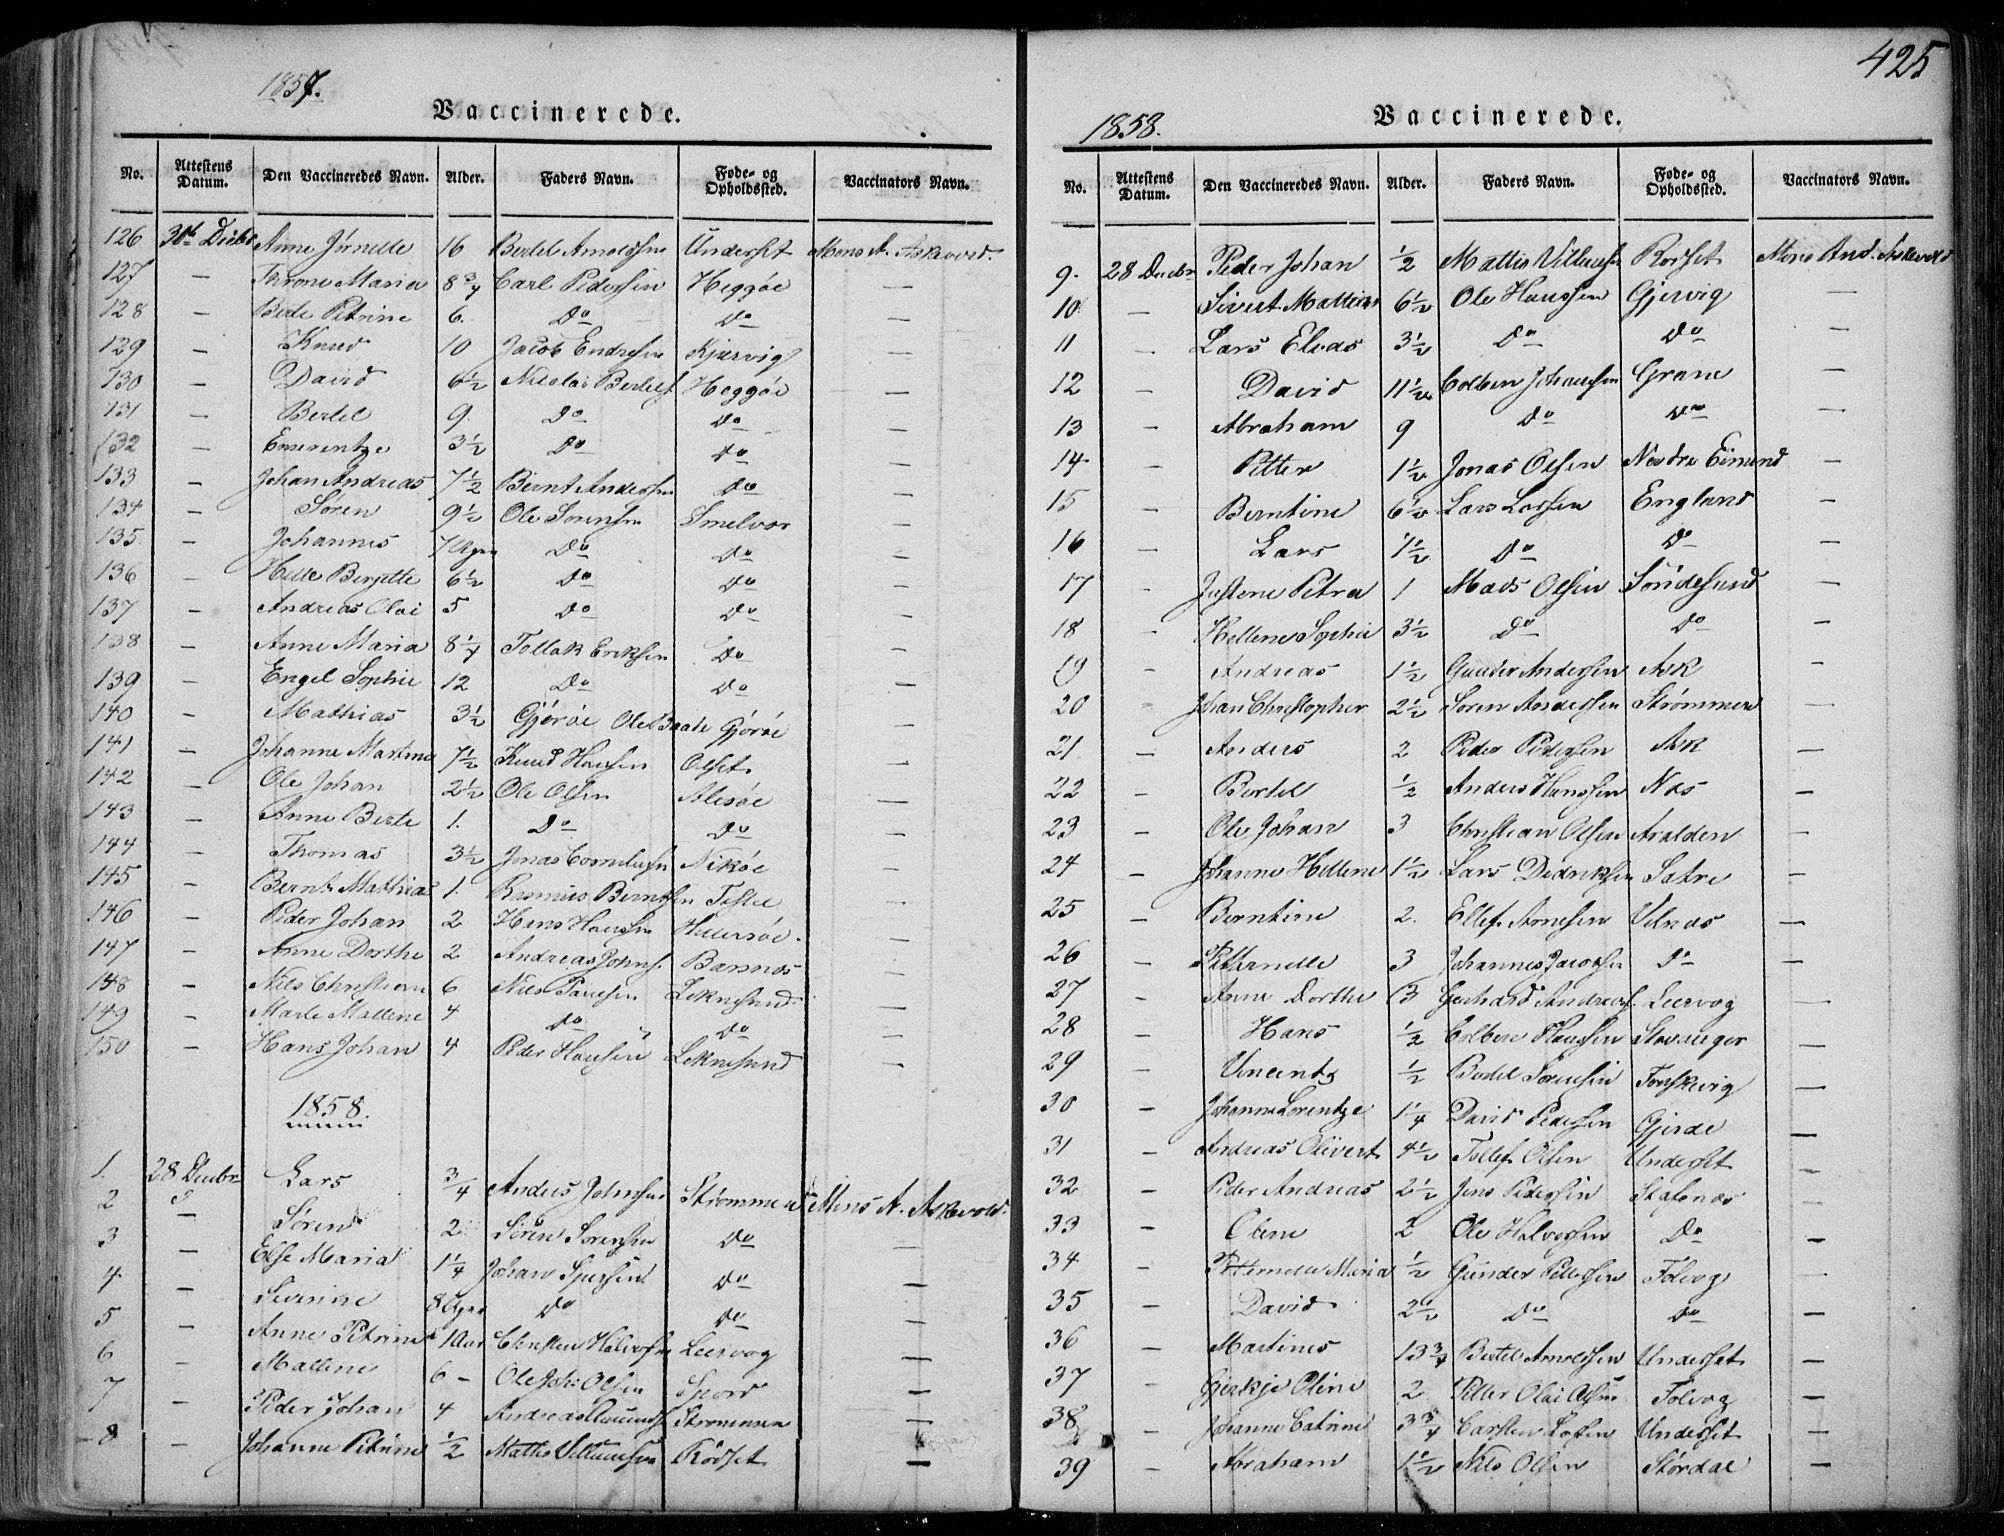 1857.
Vaccinerede.
No. Attestens Datum. Den Vaccineredes Navn. Alder. Faders Navn. Føde- og Opholdssted. Vaccinators Navn.
126 30te Decbr Anne Jørnelle 16 Bertel Arnoldsen Underset Mons A. Askevold
127 — Throne Maria 8 3/4 Carl Pedersen Heggøe —
128 — Berte Petrine 6. Do Do —
129 — Knud 10 Jacob Endresen Kjervig —
130 — David 6½ Nicolai Bertels. Heggøe —
131 — Bertel 9. Do Do —
132 — Emerentze 3½ Do Do —
133 — Johan Andreas 7½ Bernt Andersen Do —
134 — Søren 9½ Ole Sørensen Smelvær —
135 — Johannes 7 Ugers Do Do —
136 — Helle Bergitte 6½ Do Do —
137 — Andreas Olai 5 Do Do —
138 — Anne Maria 8¼ Tollak Eriksen Do —
139 — Engel Sophie 12 Do Do —
140 — Mathias 3½ Gjørøe Ole Baade Gjørøe —
141 — Johanne Martine 7½ Knud Hansen Olset —
142 — Ole Johan 2½ Ole Olsen Alesøe —
143 — Anne Berte 1. Do Do —
144 — Thomas 3½ Jonas Corneliusen Nikøe —
145 — Bernt Mathias 1. Rasmus Berntsen Teste —
146 — Peder Johan 2 Hans Hansen —
147 — Anne Dorthe 2 Andreas Johns. Barnnæs —
148 — Nils Christian 6 Nils Paulsen Leknesund —
149 — Marte Mallene 4 Do Do —
150 — Hans Johan 4 Peder Hansen Leknesund —
1858.
1. 28 Decbr Lars 3/4 Anders Johnsen Strømmen Mons A. Askevold.
2 Søren 2 Søren Sørensen Do —
3 — Else Maria 1¼ Johan Do —
4 — Severine 8 Ugers Do Do —
5 — Anne Petrine 1 Aar Christen Halvorsen Leervog —
6 — Mallene 6 — Ole Olsen Spord —
7 — Peder Johan 4 Andreas Strømmen —
8 — Johanne Petrine ½ Mattis Villumsen Rødset —
425
1858.
Vaccinerede.
No. Attestens Datum. Den Vaccineredes Navn. Alder. Faders Navn. Føde- og Opholdssted. Vaccinators Navn.
9. 28 Decbr Peder Johan ½ Mattis Villumsen Rødset Mons And. Askevold
10 — Sivert Mattias 6½ Ole Hansen Gjervig —
11 — Lars Elias 3½ Do Do —
12 — David 11½ Colben Johansen Gram —
13 — Abraham 9 Do Do —
14 — Petter 1½ Jonas Olsen Nedre Eimind —
15 — Berntine 6½ Lars Larsen England —
16 — Lars 1½ Do Do —
17 — Justene Petra 1 Mads Olsen Søndesund —
18 — Hellene Sophie 3½ Do Do —
19 — Andreas 1½ Gunder Andersen Ask —
20 Johan Christopher 2½ Søren Andersen Strømmen —
21 — Anders 2 Peder Pedersen Ask —
22 — Bertel ½ Anders Hanssen Nes —
23 — Ole Johan 3 Christian Olsen Aralden —
24 — Johanne Hellene 1½ Lars Didriksen Satre —
25 — Berntine 2. Ellef Arnesen Velnæs —
26 — Petternelle 3 Johannes Jacobsen Do —
27 — Anne Dorthe 3 Gerhard Andreas. Leervog —
28 — Hans ½ Colben Hanssen Stavanger —
29 — Vincentz ½ Bertel Sørensen —
30 — Johanne Lorentze 1¼ David Pedersen Gjerde —
31 — Andreas Olivert 4½ Tollef Olsen Underset —
32 — Peder Andreas 2½ Jens Pedersen Stafsnæs —
33 — Oline 2 Ole Halvorsen Do —
34 — Petternelle Maria ½ Gunder Pettersen Folvog —
35 — David 2½ Do Do —
36 — Martines 13 3/4 Bertel Arnoldsen Underset —
37 — Gjertje Oline 2 Petter Olai Olsen Folvog —
38 — Johanne Catrine 3 3/4 Carsten Larsen Underset —
39 — Abraham 1½ Nils Olsen Størdal —